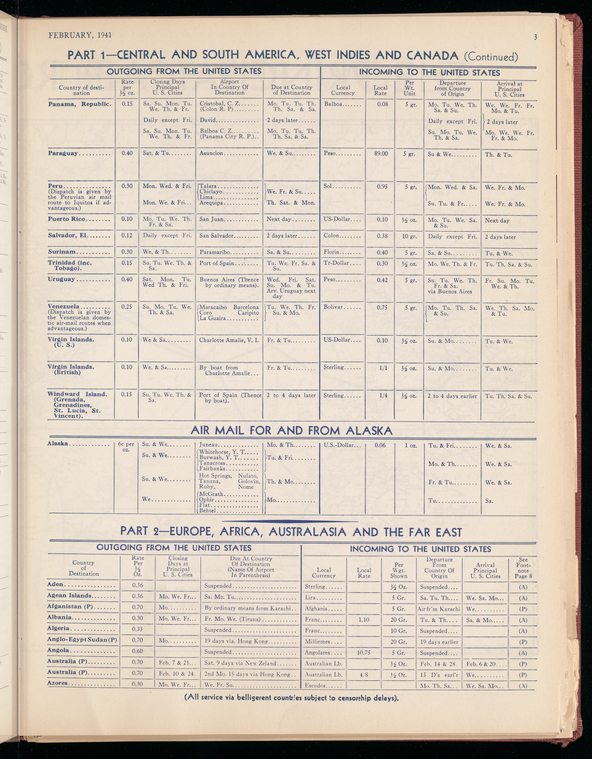 FEBRUARY, 1941 3
PART 1—CENTRAL AND SOUTH AMERICA, WEST INDIES AND CANADA (Continued)
OUTGOING FROM THE UNITED STATES INCOMING TO THE UNITED STATES
Country of desti-nation Rate per ½ oz. Closing Days Principal U. S. Cities Airport In Country Of Destination Due at Country of Destination Local Currency Local Rate Per Wt. Unit Departure from Country of Origin Arrival at Principal U. S. Cities
Panama, Republic. 0.15 Sa. Su. Mon. Tu. We. Th. & Fr. Cristobal, C. Z. (Colon R. P.) Mo. Tu. Tu. Th. Th. Sa. & Sa. Balboa 0.08 5 gr. Mo. Tu. We. Th. Sa. & Su. We. We. Fr. Fr. Mo. & Tu.
Daily except Fri. David 2 days later Daily except Fri. 2 days later
Sa. Su. Mo. Tu. We. Th. & Fr. Balboa C. Z. (Panama City R. P.) Mo. Tu. Tu. Th. Th. Sa. & Sa. Su. Mo. Tu. We. Th. & Sa. Mo. We. We. Fr. Fr. & Mo.
Paraguay 0.40 Sat. & Tu. Asuncion We. & Su. Peso 89.00 5 gr. Su & We. Th. & Tu.
Peru (Dispatch is given by the Peruvian air mail route to Iquitos if ad-vantageous.) 0.30 Mon. Wed. & Fri. Talara Chiclayo Lima We. Fr. & Su. Sol 0.95 5 gr. Mon. Wed. & Sa. We. Fr. & Mo.
Mon. We. & Fri. Arequipa Th. Sat. & Mon. Su. Tu. & Fr. We. Fr. & Mo.
Puerto Rico 0.10 Mo. Tu. We. Th. Fr. & Sa. San Juan Next day US-Dollar 0.10 ½ oz. Mo. Tu. We. Sa. & Su. Next day
Salvador, El 0.12 Daily except Fri. San Salvador 2 days later Colon 0.38 10 gr. Daily except Fri. 2 days later
Surinam 0.30 We. & Th. Paramaribo Sa. & Su. Florin 0.40 5 gr. Sa. & Su. Tu. & We.
Trinidad (inc. Tobago). 0.15 Su. Tu. We. Th. & Sa. Port of Spain Tu. We. Fr. Sa. & Su. Tr-Dollar 0.30 ½ oz. Mo. We. Th. & Fr. Tu. Th. Sa. & Su.
Uruguay 0.40 Sat. Mon. Tu. Wed Th. & Fr. Buenos Aires (Thence by ordinary means). Wed. Fri. Sat. Su. Mo. & Tu. Arv. Uruguay next day Peso 0.42 5 gr. Su. Tu. We. Th. Fr. & Sa. via Buenos Aires Fr. Su. Mo. Tu. We. & Th.
Venezuela (Dispatch is given by the Venezuelan domes-tic air-mail routes when advantageous.) 0.25 Su. Mo. Tu. We. Th. & Sa. Maracaibo Barcelona Coro Caripito La Guaira Tu. We. Th. Fr. Su. & Mo. Bolivar 0.75 5 gr. Mo. Tu. Th. Sa. & Su. We. Th. Sa. Mo. & Tu.
Virgin Islands. (U. S.) 0.10 We & Sa. Charlotte Amalie, V. I. Fr. & Tu. US-Dollar 0.10 ½ oz. Su. & Mo. Tu. & We.
Virgin Islands. (British) 0.10 We. & Sa. By boat from Charlotte Amalie Fr. & Tu. Sterling 1/1 ½ oz. Su. & Mo. Tu. & We.
Windward Island. (Grenada, Grenadines, St. Lucia, St. Vincent). 0.15 Su. Tu. We. Th. & Su. Port of Spain (Thence by boat). 2 to 4 days later Sterling 1/4 ½ oz. 2 to 4 days earlier Tu. Th. Sa. & Su.
AIR MAIL FOR AND FROM ALASKA
Alaska 6c per oz. Su. & We. Juneau Mo. & Th. U.S.-Dollar 0.06 1 oz. Tu. & Fri. We. & Sa.
Su. & We. Whitehorse, Y. T. Burwash, Y. T. Tanacross Fairbanks Tu. & Fri. Mo. & Th. We. & Sa.
Su. & We. Hot Springs, Nulato, Tanana, Golovin, Ruby, Nome Th. & Mo. Fr. & Tu. We. & Sa.
We. McGrath Ophir Flat Bethel Mo. Tu. Sa.
PART 2—EUROPE, AFRICA, AUSTRALASIA AND THE FAR EAST
OUTGOING FROM THE UNITED STATES INCOMING TO THE UNITED STATES
Country of Destination Rate Per ½ Oz. Closing Days at Principal U. S. Cities Due At Country Of Destination (Name Of Airport In Parenthesis) Local Currency Local Rate Per Wgt. Shown Departure From Country Of Origin Arrival Principal U. S. Cities See Foot-note Page 8
Aden 0.36 Suspended Sterling ½ Oz. Suspended (A)
Agean Islands 0.36 Mo. We. Fr. Sa. Mo. Tu. Lira 5 Gr. Sa. Tu. Th. We. Sa. Mo. (A)
Afganistan (P) 0.70 Mo. By ordinary means from Karachi Afghanis 5 Gr. Air fr'm Karachi We. (P)
Albania 0.30 Mo. We. Fr. Fr. Mo. We. (Tirana) Franc 1.10 20 Gr. Tu. & Th. Sa. & Mo. (A)
Algeria 0.33 Suspended Franc 10 Gr. Suspended (A)
Anglo-Egypt Sudan (P) 0.70 Mo. 19 days via. Hong Kong Milliemes 20 Gr. 19 days earlier (P)
Angola 0.60 Suspended Angolares 10.75 5 Gr. Suspended (A)
Australia (P) 0.70 Feb. 7 & 21 Sat. 9 days via New Zeland Australian Lb. ½ Oz. Feb. 14 & 28 Feb. 6 & 20 (P)
Australia (P) 0.70 Feb. 10 & 24 2nd Mo. 15 days via Hong Kong Australian Lb. 4/8 ½ Oz. 15 D's earl'r We. (P)
Azores 0.30 Mo. We. Fr. We. Fr. Su. Escudos Mo. Th. Sa. We. Sa. Mo. (A)
(All service via belligerent countries subject to censorship delays).